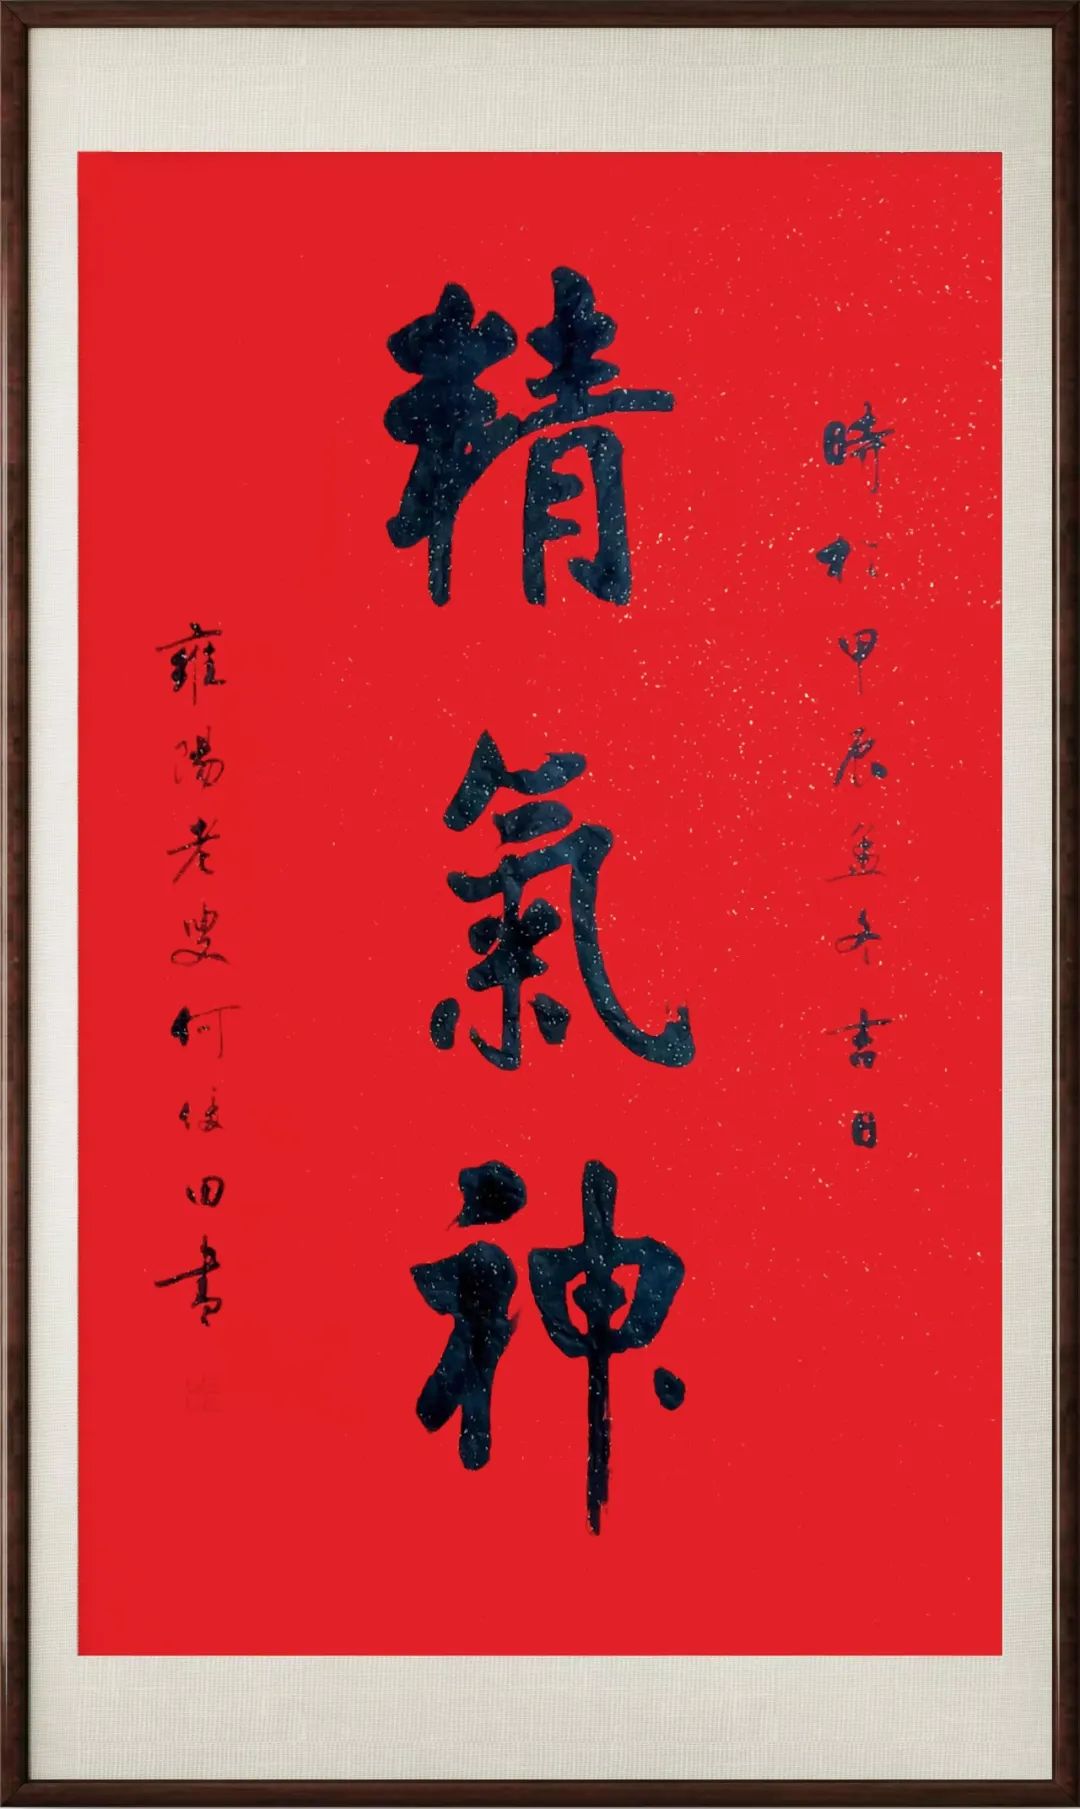 時於甲辰孟冬吉日
精氣神
雍陽老叟何俊田書